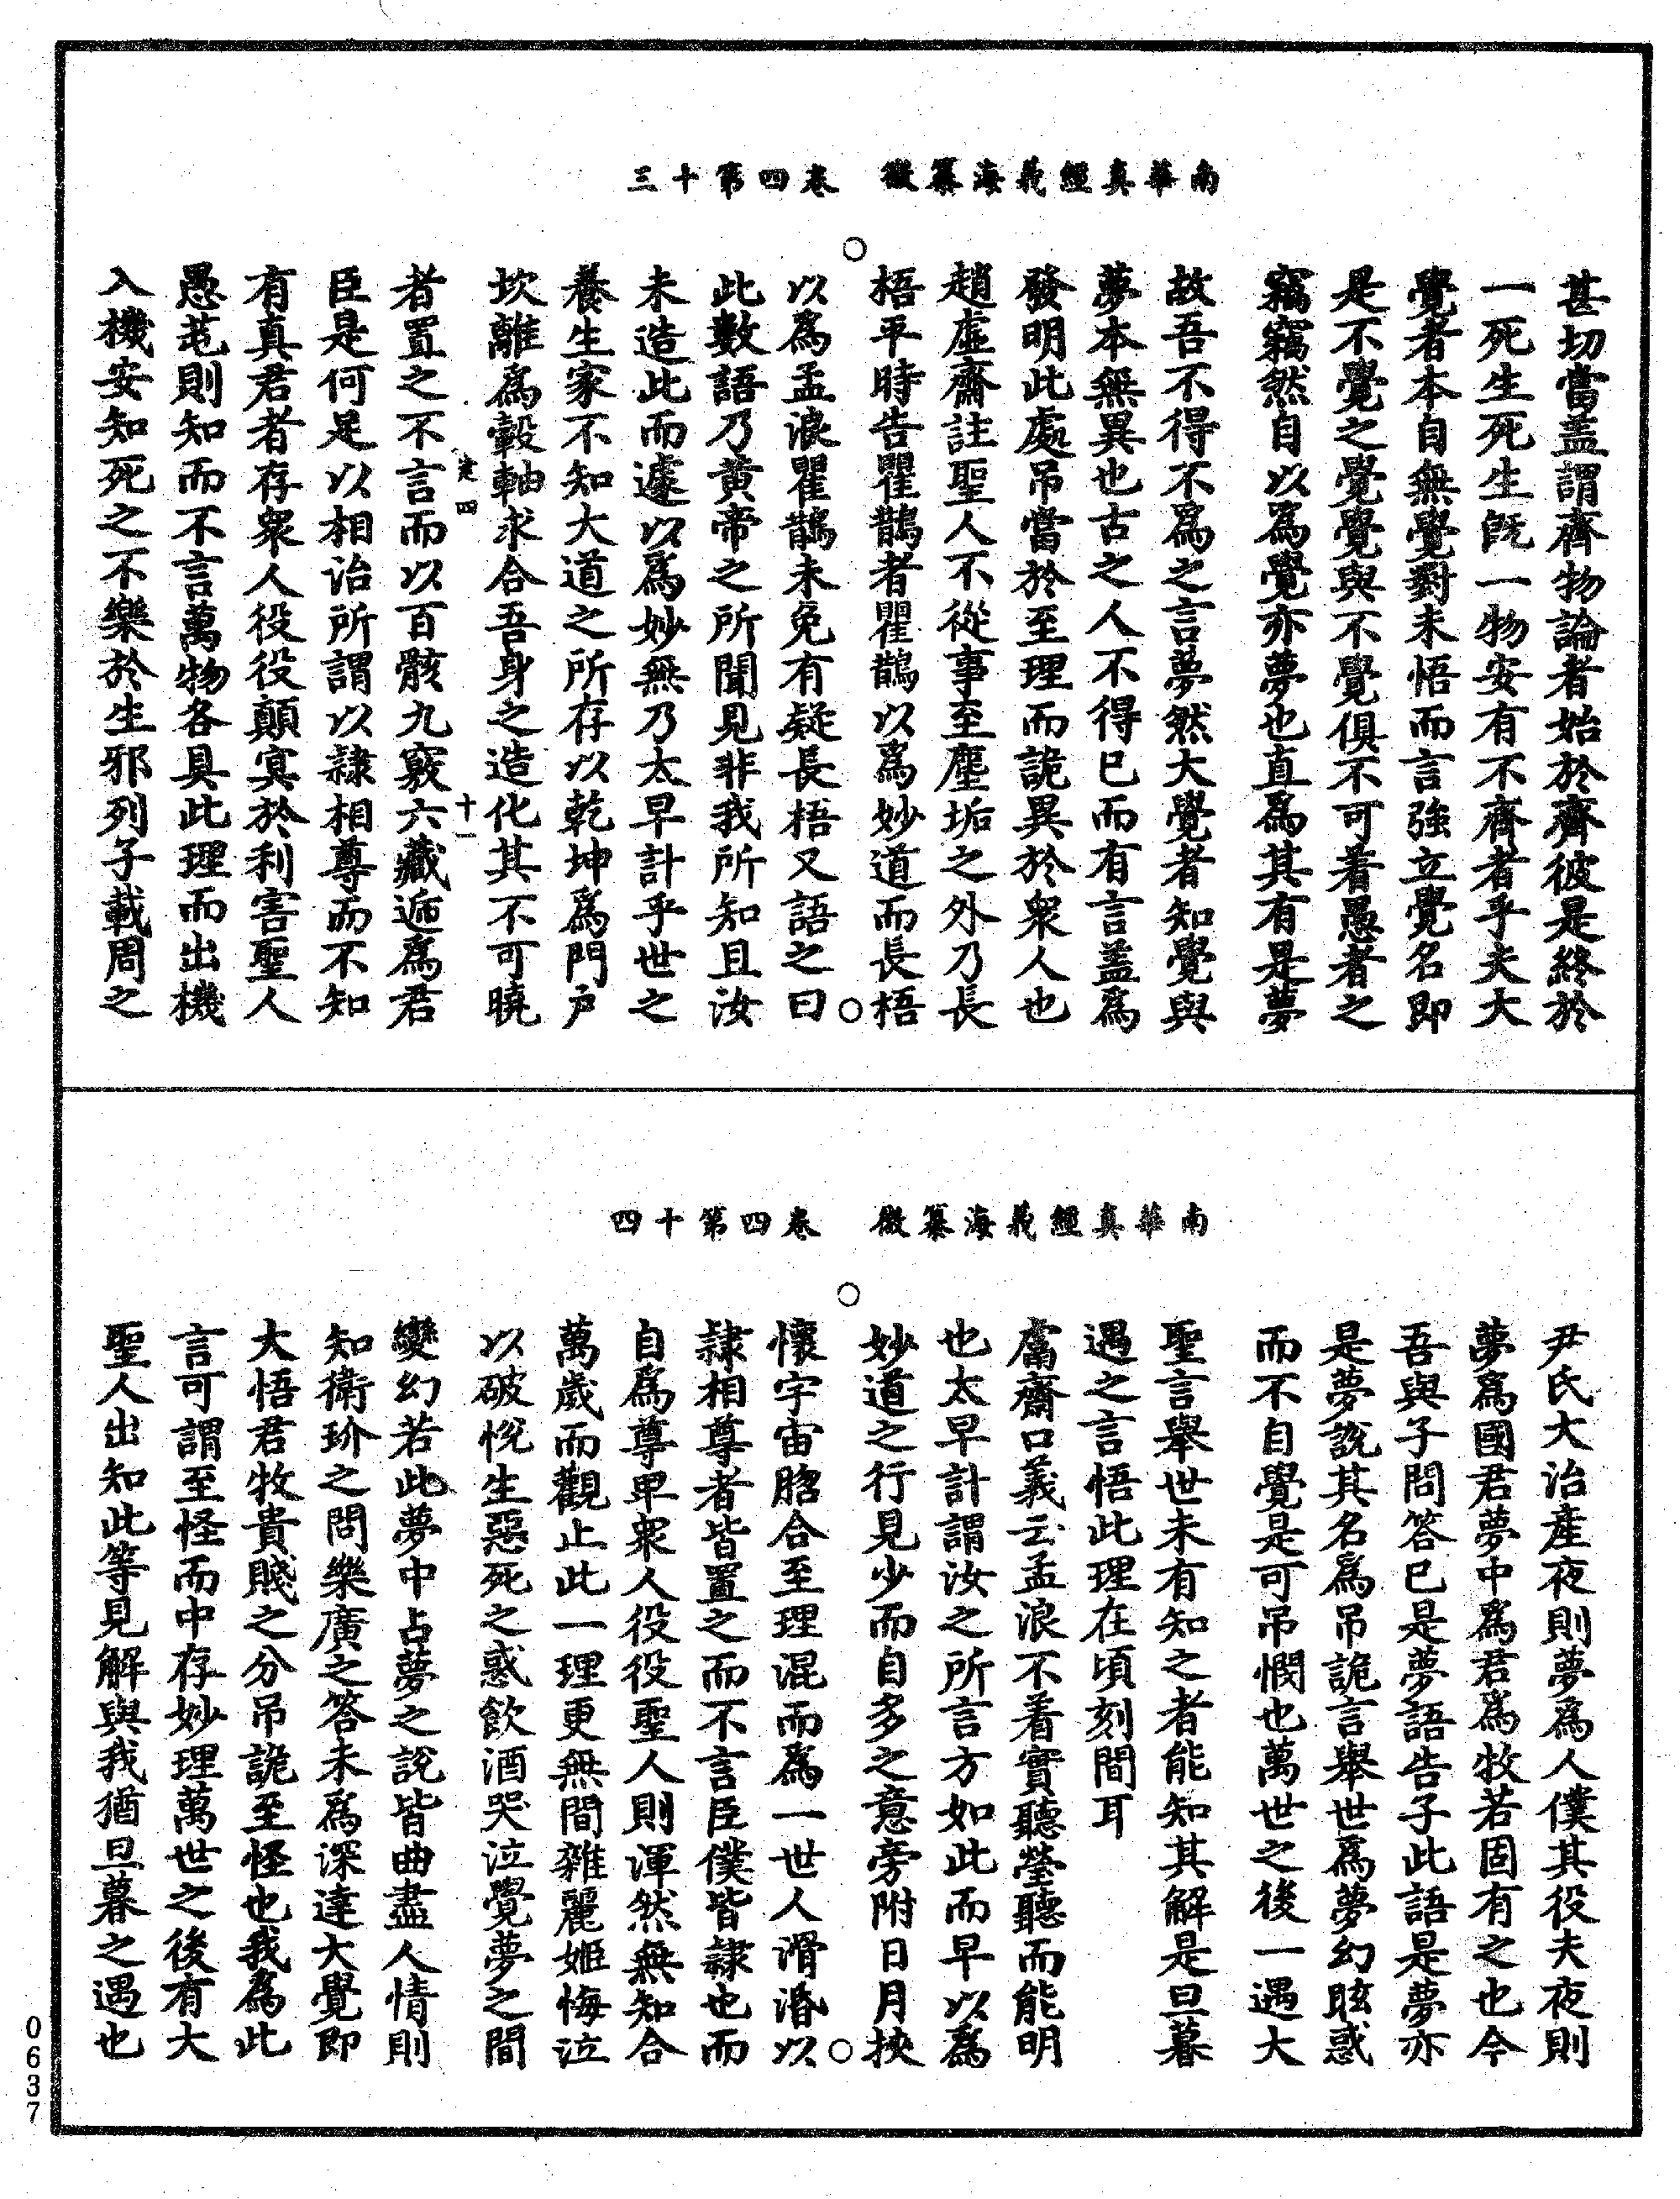 南華真經義海纂微　卷四第十三
甚切當盖謂齊物論者始於齊彼是終於
一死生死生旣一物安有不齊者乎夫大
覺者本自無覺對未悟而言強立覺名即
是不覺之覺覺與不覺俱不可着愚者之
竊竊然自以爲覺亦夢也直爲其有是夢
故吾不得不爲之言夢然大覺者知覺與
夢本無異也古之人不得已而有言盖爲
發明此處吊當於至理而詭異於衆人也
趙虛齋註聖人不從事至塵垢之外乃長
梧平時告瞿鵲者瞿鵲以爲妙道而長梧
以爲孟浪瞿鵲未免有疑長梧又語之曰
此數語乃黄帝之所聞見非我所知且汝
未造此而遽以爲妙無乃太早計乎世之
養生家不知大道之所存以乾坤爲門户
坎離爲轂軸求合吾身之造化其不可曉
定四　十一
者置之不言而以百骸九竅六藏逓爲君
臣是何足以相治所謂以隷相尊而不知
有真君者存衆人役役顛㝠於利害聖人
愚芚則知而不言萬物各具此理而出機
入機安知死之不樂於生邪列子載周之
南華真經義海纂微　卷四第十四
尹氏大治產夜則夢爲人僕其役夫夜則
夢爲國君夢中爲君爲牧若固有之也今
吾與子問答已是夢語告子此語是夢亦
是夢說其名爲吊詭言舉世爲夢幻眩惑
而不自覺是可吊憫也萬世之後一遇大
聖言舉世未有知之者能知其解是旦暮
遇之言悟此理在頃刻間耳
鬳齋口義云孟浪不着實聽瑩聽而能明
也太早計謂汝之所言方如此而早以爲
妙道之行見少而自多之意旁附日月挾
懷宇宙脗合至理混而爲一世人滑涽以
隷相尊者皆置之而不言臣僕皆隷也而
自爲尊卑衆人役役聖人則渾然無知合
萬歲而觀止此一理更無間雜麗姬悔泣
以破悅生惡死之惑飲酒哭泣覺夢之間
變幻若此夢中占夢之說皆曲盡人情則
知衛玠之問樂廣之答未爲深達大覺即
大悟君牧貴賤之分吊詭至怪也我爲此
言可謂至怪而中存妙理萬世之後有大
聖人出知此等見解與我猶旦暮之遇也
0637